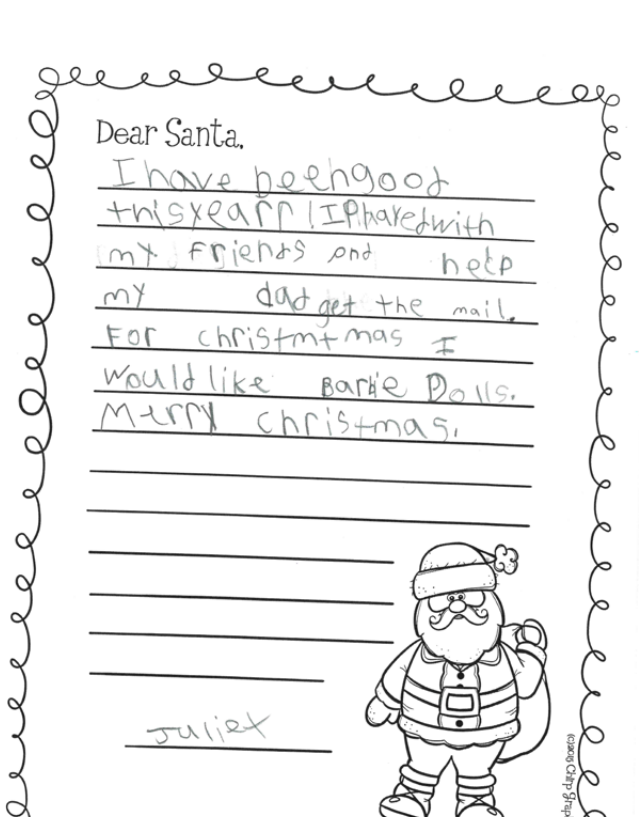 Dear Santa,
I have beehgood
thisyearr! IPharedwith
my Friends and help
my dad get the mail.
For christmtmas I
would like Barbie Dolls.
Merry christmas.
Juliet